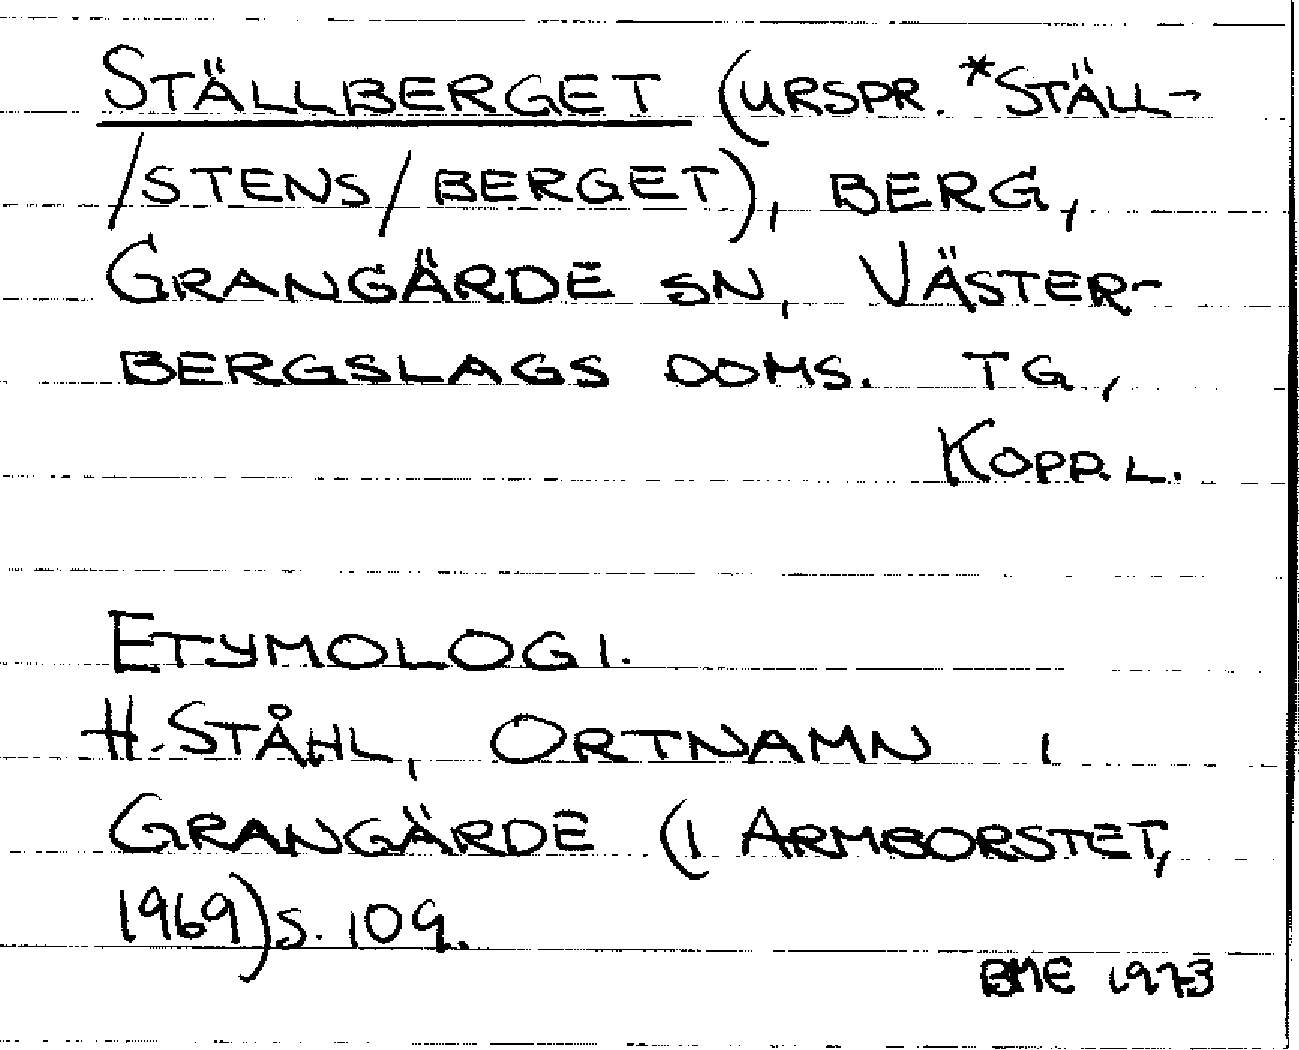 STÄLLBERGET (URSPR. *STÄLL-
/STENS/BERGET), BERG,
GRANGÄRDE SN, VÄSTER-
BERGSLAGS DOMS. TG,
KOPP. L.
ETYMOLOGI.
H. STÅHL, ORTNAMN I
GRANGÄRDE (I ARMBORSTET,
1969) S. 109.
BME 1973